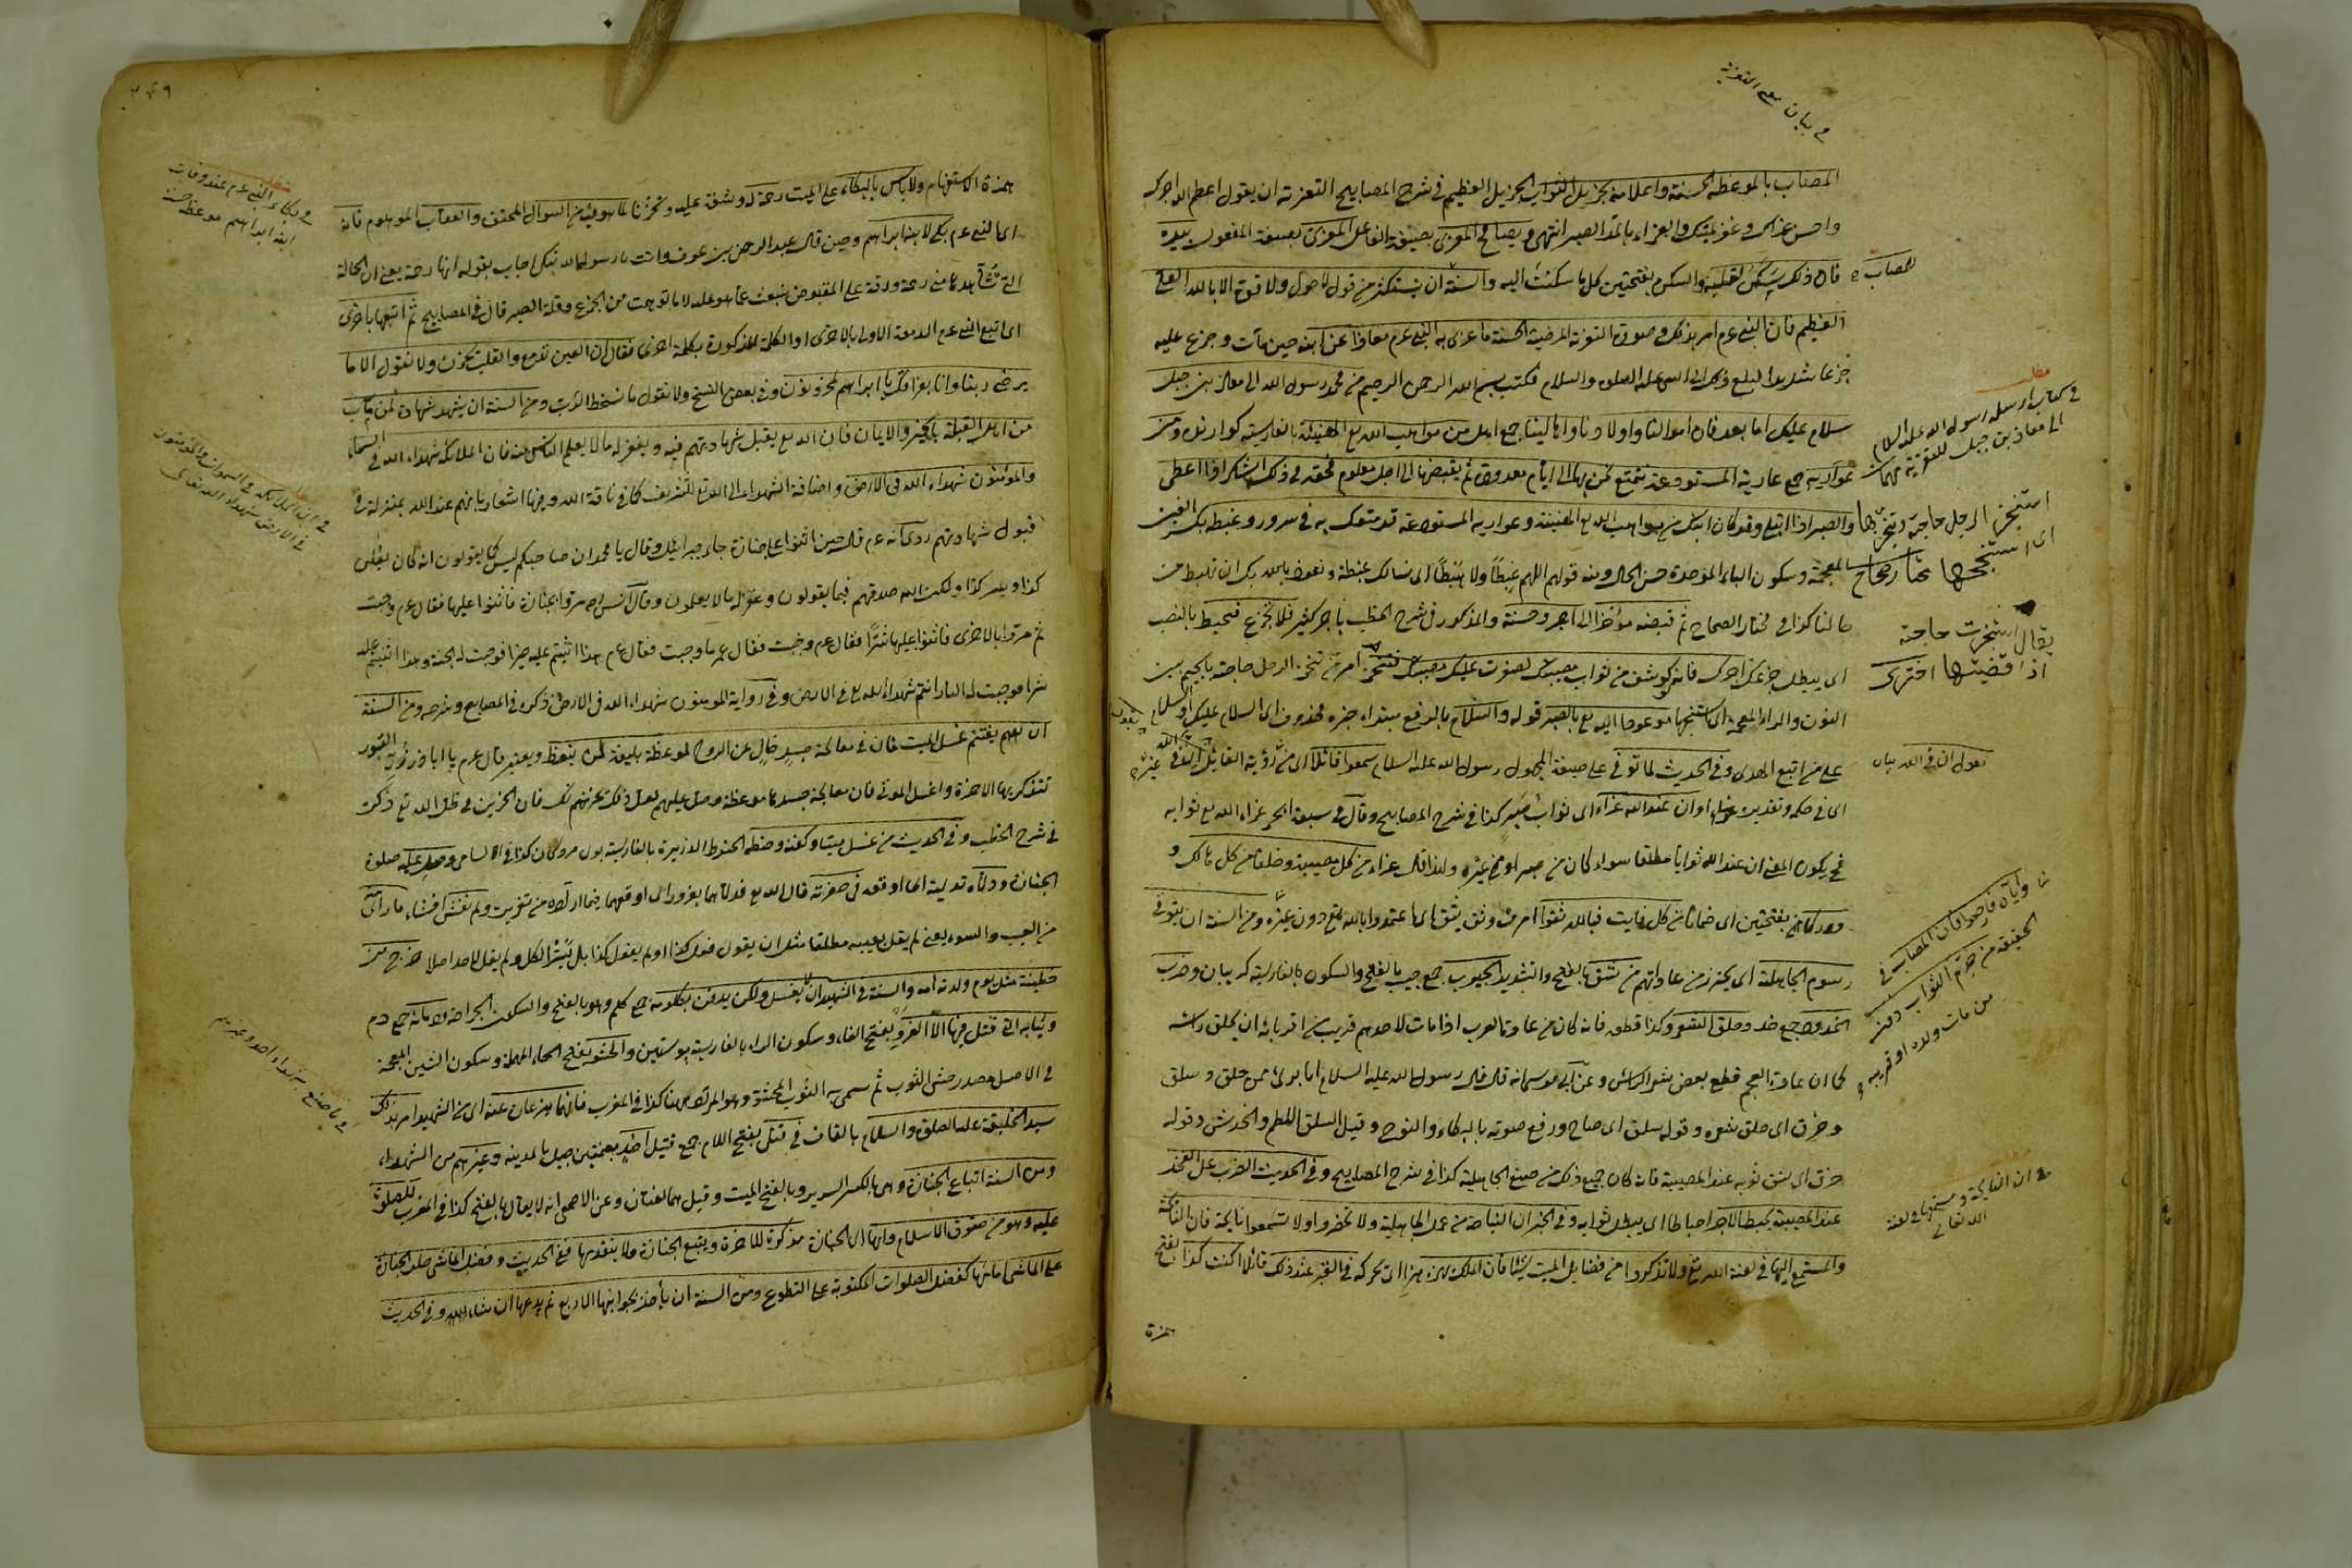 في بيان معنى التعزية
المصاب بالموعظة الحسنة واعلامه بجزيل الثواب الجزيل العظيم في شرح المصابيح التعزية ان يقول اعظم الله اجرك
واحسن عزاك وغفر لميتك والعزاء بالمد الصبر انتهى ويصافح المعزي بصيغة الفاعل المعزى بصيغة المفعول بيده
فان ذلك سكن لقلبه والسكن بفتحتين كل ما سكنت اليه والسنة ان يستكثر من قول لا حول ولا قوة الا بالله العلي
للمصاب
العظيم فان النبي عم امر بذلك وصورة التعزية المرضية الحسنة ما عزى به النبي عم معاذا عن ابنه حين مات وجزع عليه
جزعا شديدا فبلغ ذلك الى النبي عليه الصلوة والسلام فكتب بسم الله الرحمن الرحيم من محمد رسول الله الى معاذ بن جبل
سلام عليك اما بعد فان اموالنا واولادنا واهالينا جمع اهل من مواهب الله تع الهنيئة بالفارسية كوارنده ومن
عواريه جمع عارية المستودعة نتمتع بها الى ايام معدودة ثم يقبضها الى اجل معلوم فحقه في ذلك الشكر اذا اعطى
والصبر اذا ابتلى وقد كان ابنك من مواهب الله تع الهنيئة وعواريه المستودعة قد متعك به في سرور وغبطة بكسر الغين
المعجمة وسكون الباء الموحدة حسن الحال ومنه قولهم اللهم غبطا ولا هبطا اى نسألك غبطة ونعوذ بالله بك ان نهبط من
حالنا كذا في مختار الصحاح ثم قبضه مؤخرا الى اجر وحسنة والمذكور في شرح الخطب باجر كثير فلا تجزع فيحبط بالنصب
اى يبطل جزعك اجرك فانه لو كشف من ثواب مصيبتك لصغرت عليك مصيبتك فتنجز امر من تنجز الرجل حاجته بالجيم بين
النون والراء المعجمة اى استنجحها موعودا اليه تع بالصبر قوله والسلام بالرفع مبتداء خبره محذوف اى السلام عليك او سلام
على من اتبع الهدى وفي الحديث لما توفي على صيغة المجهول رسول الله عليه السلام سمعوا قائلا اى من رؤية القائل ان في
اى في حكمه وتقديره عزاء او ان عند الله عزاء اى ثواب صبر كذا في شرح المصابيح وقال في سبعة ابحر عزاء الله تع ثوابه
فح يكون المعنى ان عند الله ثوابا مطلقا سواء كان من صبر او من غيره ولذا قال عزاء من كل مصيبة وخلفا من كل هالك و
ودركا بفتحتين اى ضمانا من كل فايت فبالله ثقوا امر من وثق يثق اى اعتمدوا بالله تع دون غيره ومن السنة ان يتوقى
رسوم الجاهلية اى يحترز من عاداتهم من شق بالفتح والتشديد الجيوب جمع جيب بالفتح والسكون بالفارسية كريبان وضرب
الخدود جمع خد وحلق الشعر وكذا قطعه فانه كان من عادة العرب اذا مات لاحدهم قريب من اقربائه ان يحلق راسه
كما ان عادة العجم قطع بعض شعر الراس وعن ابي موسى انه قال قال رسول الله عليه السلام انا بريء ممن حلق وسلق
وخرق اى حلق شعره وقوله سلق اى صاح ورفع صوته بالبكاء والنوح وقيل السلق اللطم والخدش وقوله
خرق اى شق ثوبه عند المصيبة فانه كان جميع ذلك من صنيع الجاهلية كذا في شرح المصابيح وفي الحديث الضرب على الفخذ
عند المصيبة يحبط الاجر احباطا اى يبطل ثوابه وفي الخبر ان النياحة من عمل الجاهلية ولا تحضروا ولا تسمعوا نايحة فان النائحة
والمستمع اليها في لعنة الله تع ولا تذكروا من فضايل الميت شيئا فان الملك يهزه هزا اى تحركه في القبر عند ذلك قائلا اكنت كذا بفتح
همزة
مطلب
في كتاب ارسله رسول الله عليه السلام
الى معاذ بن جبل للتعزية مهمات
استنجز الرجل حاجته وتنجزها
اى استنجحها مختار صحاح
يقال نجزت حاجته
اذا قضيتها اختري
في ان النايحة ومستمعها في لعنة
الله تعالى
٢٤٩
همزة الاستفهام ولا باس بالبكاء على الميت رحمة له وشفقة عليه وتحزنا لما هو فيه من السوال المحقق والعقاب الموهوم فانه
اى النبي عم بكى لابنه ابراهيم وحين قال عبد الرحمن بن عوف وانت يا رسول الله تبكي اجاب بقوله انها رحمة يعني ان الحالة
التي تشاهدها مني رحمة ورقة على المقبوض تنبعث عما هو عليه لا ما توهمت من الجزع وقلة الصبر قال في المصابيح ثم اتبعها باخرى
اى اتبع النبي عم الدمعة الاولى بالاخرى او الكلمة المذكورة بكلمة اخرى فقال ان العين تدمع والقلب يحزن ولا نقول الا ما
يرضى ربنا وانا بفراقك يا ابراهيم لمحزونون وفي بعض النسخ ولا نقول ما يسخط الرب ومن السنة ان يشهد شهادة لمن مات
من اهل القبلة بالخير والايمان فان الله تع يقبل شهادتهم فيه ويغفر له ما لا يعلم الناس منه فان الملائكة شهداء الله في السماء
والمؤمنون شهداء الله في الارض واضافة الشهداء الى الله تع للتشريف كما في ناقة الله وفيها اشعار بانهم عند الله بمنزلة في
قبول شهادتهم روى انه عم قال حين اثنوا على جنازة جاء جبرائيل وقال يا محمد ان صاحبكم ليس كما يقولون انه كان يعلن
كذا ويسر كذا ولكن الله صدقهم فيما يقولون وغفر له ما لا يعلمون وقال انس رض مروا بجنازة فاثنوا عليها فقال عم وجبت
ثم مروا بالاخرى فاثنوا عليها شرا فقال عم وجبت فقال عمر ما وجبت فقال عم هذا اثنيتم عليه خيرا فوجبت له الجنة وهذا اثنيتم عليه
شرا فوجبت له النار انتم شهداء الله تع في الارض وفي رواية المومنون شهداء الله في الارض ذكره في المصابيح وشرحه ومن السنة
ان يغتنم غسل الميت فان في معالجة جسد خال عن الروح لموعظة بليغة لمن يتعظ ويعتبر قال عم يا ابا ذر زر القبور
تتذكر بها الاخرة واغسل الموتى فان معالجة جسدها موعظة وصل عليهم لعل ذلك يحزنك فان الحزين في ظل الله تع ذكرت
في شرح الخطب وفي الحديث من غسل ميتا وكفنه وحنطه الحنوط الذريرة بالفارسية بوي مردكان كذا في الاسامي وصلى عليه صلوة
الجنازة ودلاه تدلية اى اوقعه في حفرته قال الله تع فدلاهما بغرور اى اوقعهما فيما اراده من تغريره ولم يفش افشاء ما راى منه
من العيب والسوء يعني لم يقل بعيبه مطلقا مثل ان يقول فعل كذا او لم يفعل كذا بل يستر الكل ولم يقل لاحد اصلا خرج من
خطيئته مثل يوم ولدته امه والسنة في الشهيد ان لا يغسل ولكن يدفن بكلومه جمع كلم وهو بالفتح والسكون الجراحة ودمائه جمع دم
وثيابه التي قتل فيها الا الفرو بفتح الفاء وسكون الراء بالفارسية پوستين والحشو بفتح الحاء المهملة وسكون الشين المعجمة
في الاصل مصدر حشى الثوب ثم سمي به الثوب المحشو وهو المراد ههنا كذا في المغرب فانهما ينزعان عنه اى من الشهيد امر بذلك
سيد الخليقة عليه الصلوة والسلام بالقاف في قتلى بفتح اللام جمع قتيل احد بضمتين جبل بالمدينة وغيرهم من الشهداء
ومن السنة اتباع الجنازة وهى بالكسر السرير وبالفتح الميت وقيل هما لغتان وعن الاصمعي انه لا يقال بالفتح كذا في المغرب للصلوة
عليه وهو من حقوق الاسلام وانها اى الجنازة مذكرة للاخرة ويتبع الجنازة ولا يتقدمها ففي الحديث وفضل الماشي خلف الجنازة
على الماشي امامها كفضل الصلوات المكتوبة على التطوع ومن السنة ان يأخذ بجوانبها الاربع ثم يدعها ان شاء الله وفي الحديث
مطلب
في بكاء النبي عم عند وفات
ابنه ابراهيم موعظة حسنة
في ان الملائكة في السموات والمؤمنون
في الارض شهداء الله تعالى